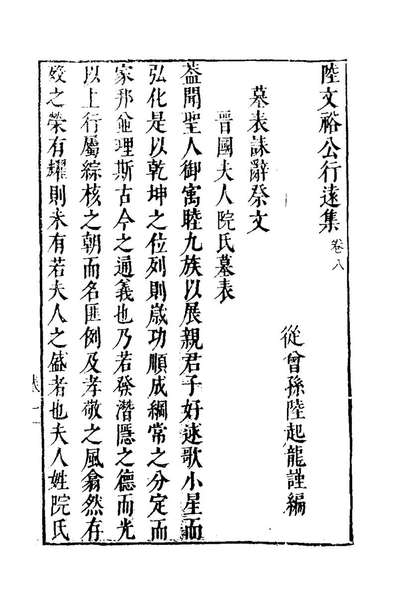 陸文裕公行遠集卷八
從曾孫陸起龍謹編
墓表誄辭祭文
晉國夫人阮氏墓表
蓋聞聖人御寓睦九族以展親君子好逑歌小星而
弘化是以乾坤之位列則歲功順成綱常之分定而
家邦僉理斯古今之通義也乃若發潛隱之德而光
以上行屬綜核之朝而名匪例及孝敬之風翕然存
歿之榮有耀則未有若夫人之盛者也夫人姓阮氏